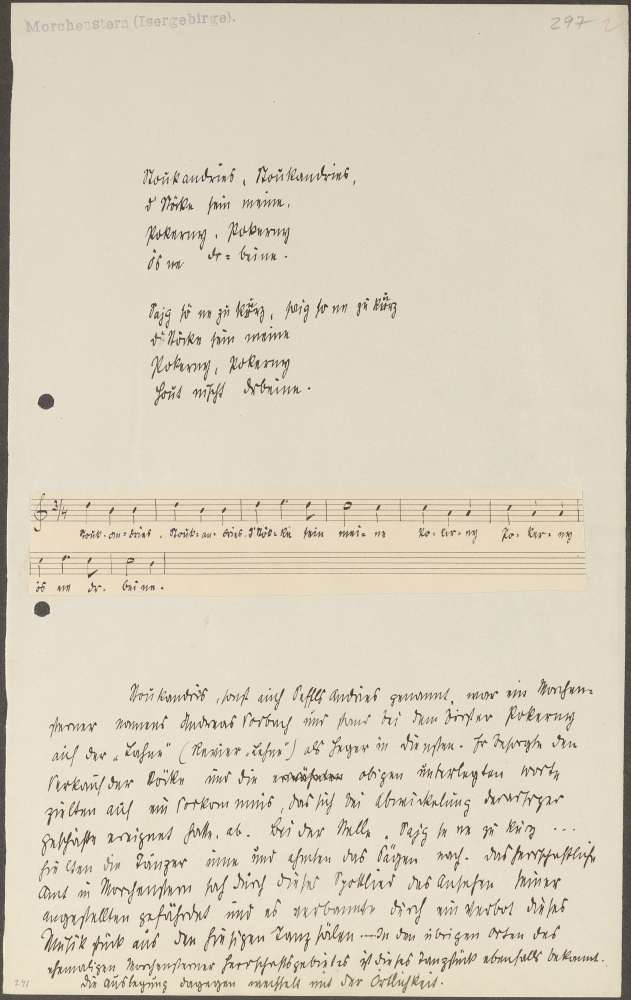 Morchenstern (Isergebirge).
297
Noukandries, Noukandries,
d' Stöcke sein meine,
Pokerny, Pokerny
ös ne dr-beine.
Sajg sö ne zu kürz, sajg so ne zu kürz
d' Stöcke sein meine
Pokerny, Pokerny
hout nischt drbeine.
3/4
Nouk-an-dries, Nouk-an-dries d'Stök-ke sein mei-ne Po-ker-ny Po-ker-ny
ös ne dr-beine.
Noukandries, sonst auch Andries genannt, war ein Morchen-
sterner namens Andreas und stand bei dem Förster Pokerny
auf der „Lehne" (Revier „Lehne") als Heger in Diensten. Er besorgte den
Verkauf der Stöcke und die obigen unterlegten Worte
zielten auf ein Vorkommnis, das sich bei Abwickelung derartiger
Geschäfte ereignet hatte, ab. Bei der Stelle „Sajg se ne zu kürz ...
hielten die Tänzer inne und ahmten das Sägen nach. Das herrschaftliche
Amt in Morchenstern sah durch dieses Spottlied das Ansehen seiner
Angestellten gefährdet und es verbannte durch ein Verbot dieses
Musikstück aus den hiesigen Tanzsälen. — In den übrigen Orten des
ehemaligen Morchensterner Herrschaftsgebietes ist dieses Tanzstück ebenfalls bekannt.
Die Auslegung dagegen wechselt mit der Örtlichkeit.